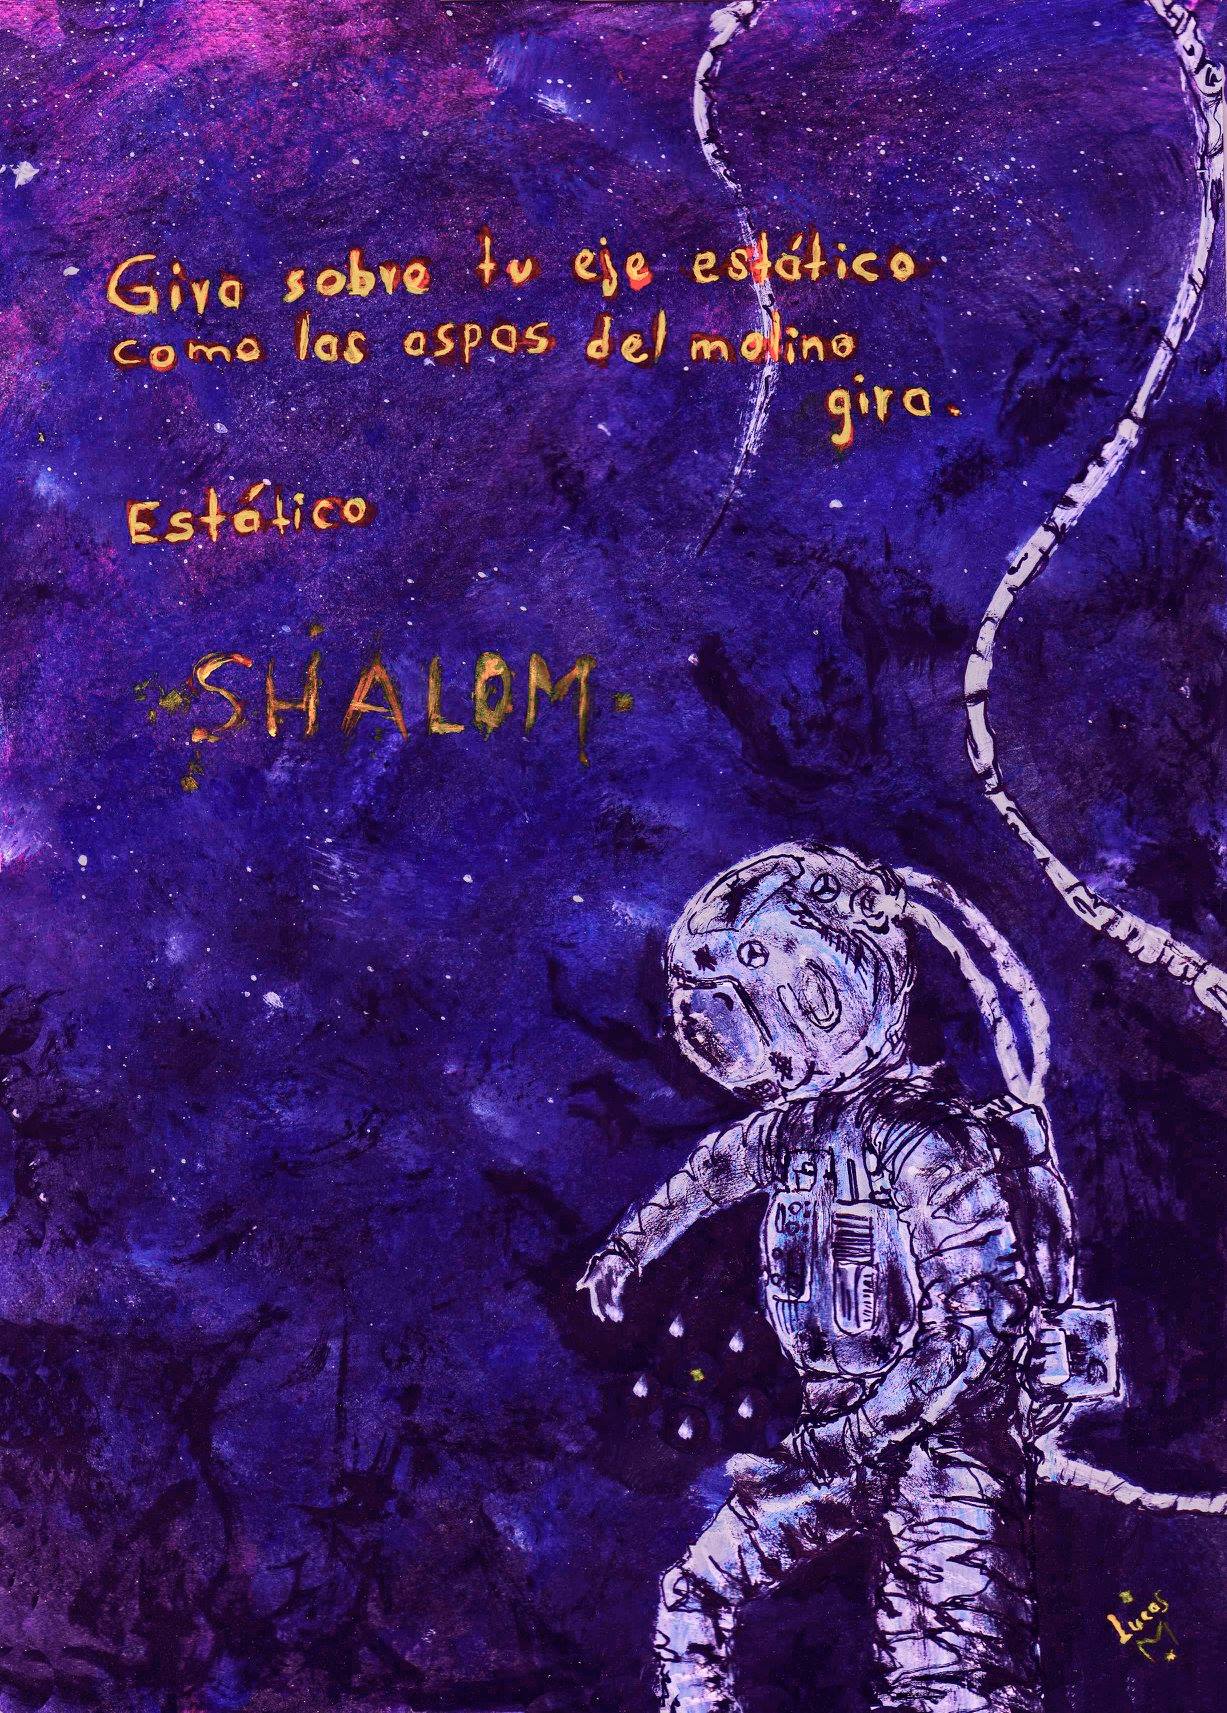 Gira sobre tu eje estático
como las aspas del molino
gira.
Estático
SHALOM.
Lucas
M